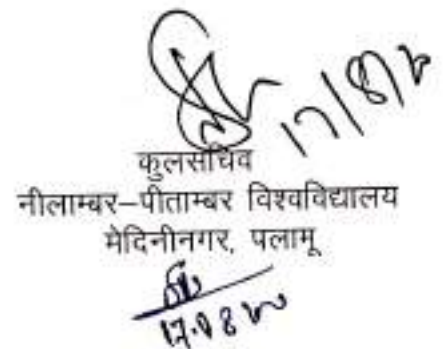 17/8/20
कुलसचिव
नीलाम्बर–पीताम्बर विश्वविद्यालय
मेदिनीनगर, पलामू
17.08.20